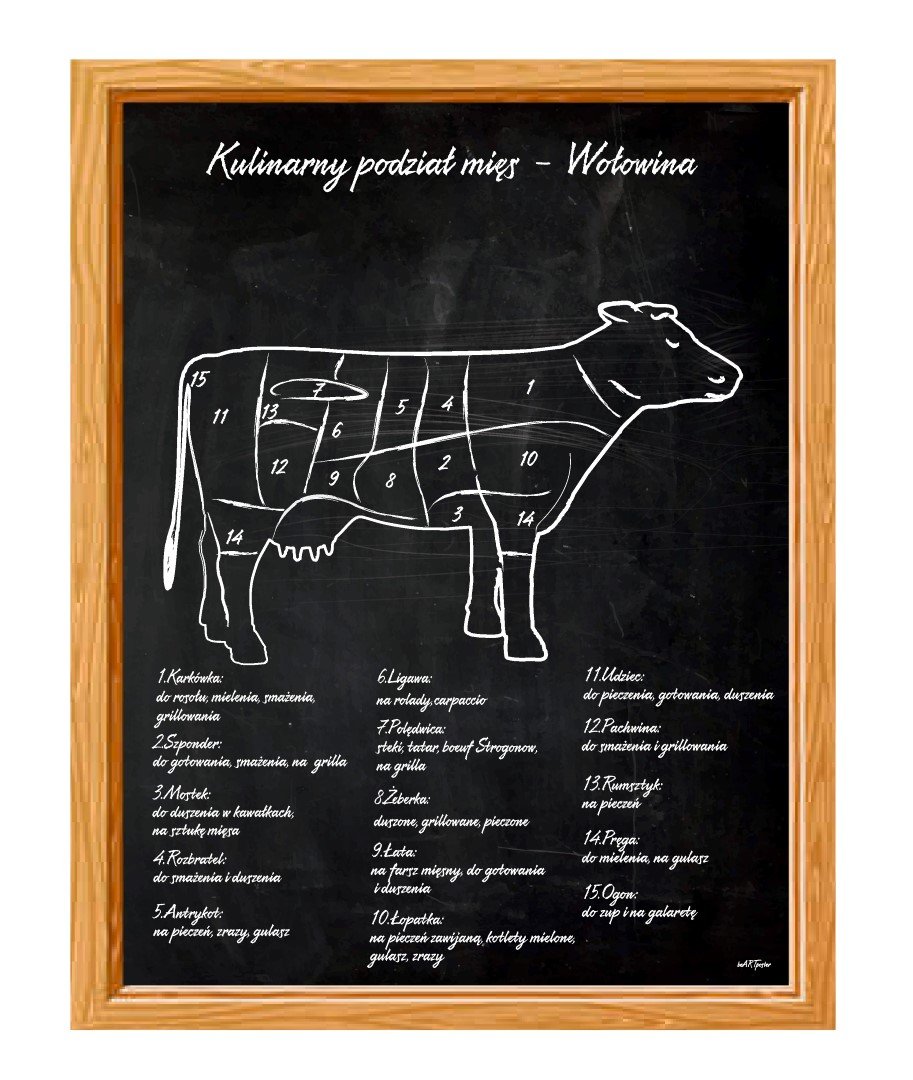 Kulinarny podział mięs - Wołowina
15
11
13
7
12
6
9
5
8
4
2
3
1
10
14
14
1.Karkówka:
do rosołu, mielenia, smażenia,
grillowania
2.Szponder:
do gotowania, smażenia, na grilla
3.Mostek:
do duszenia w kawałkach,
na sztukę mięsa
4.Rozbratel:
do smażenia i duszenia
5.Antrykot:
na pieczeń, zrazy, gulasz
6.Ligawa:
na rolady, carpaccio
7.Polędwica:
steki, tatar, boeuf Strogonow,
na grilla
8.Żeberka:
duszone, grillowane, pieczone
9.Łata:
na farsz mięsny, do gotowania
i duszenia
10.Łopatka:
na pieczeń zawijaną, kotlety mielone,
gulasz, zrazy
11.Udziec:
do pieczenia, gotowania, duszenia
12.Pachwina:
do smażenia i grillowania
13.Rumsztyk:
na pieczeń
14.Pręga:
do mielenia, na gulasz
15.Ogon:
do zup i na galaretę
beARTposter